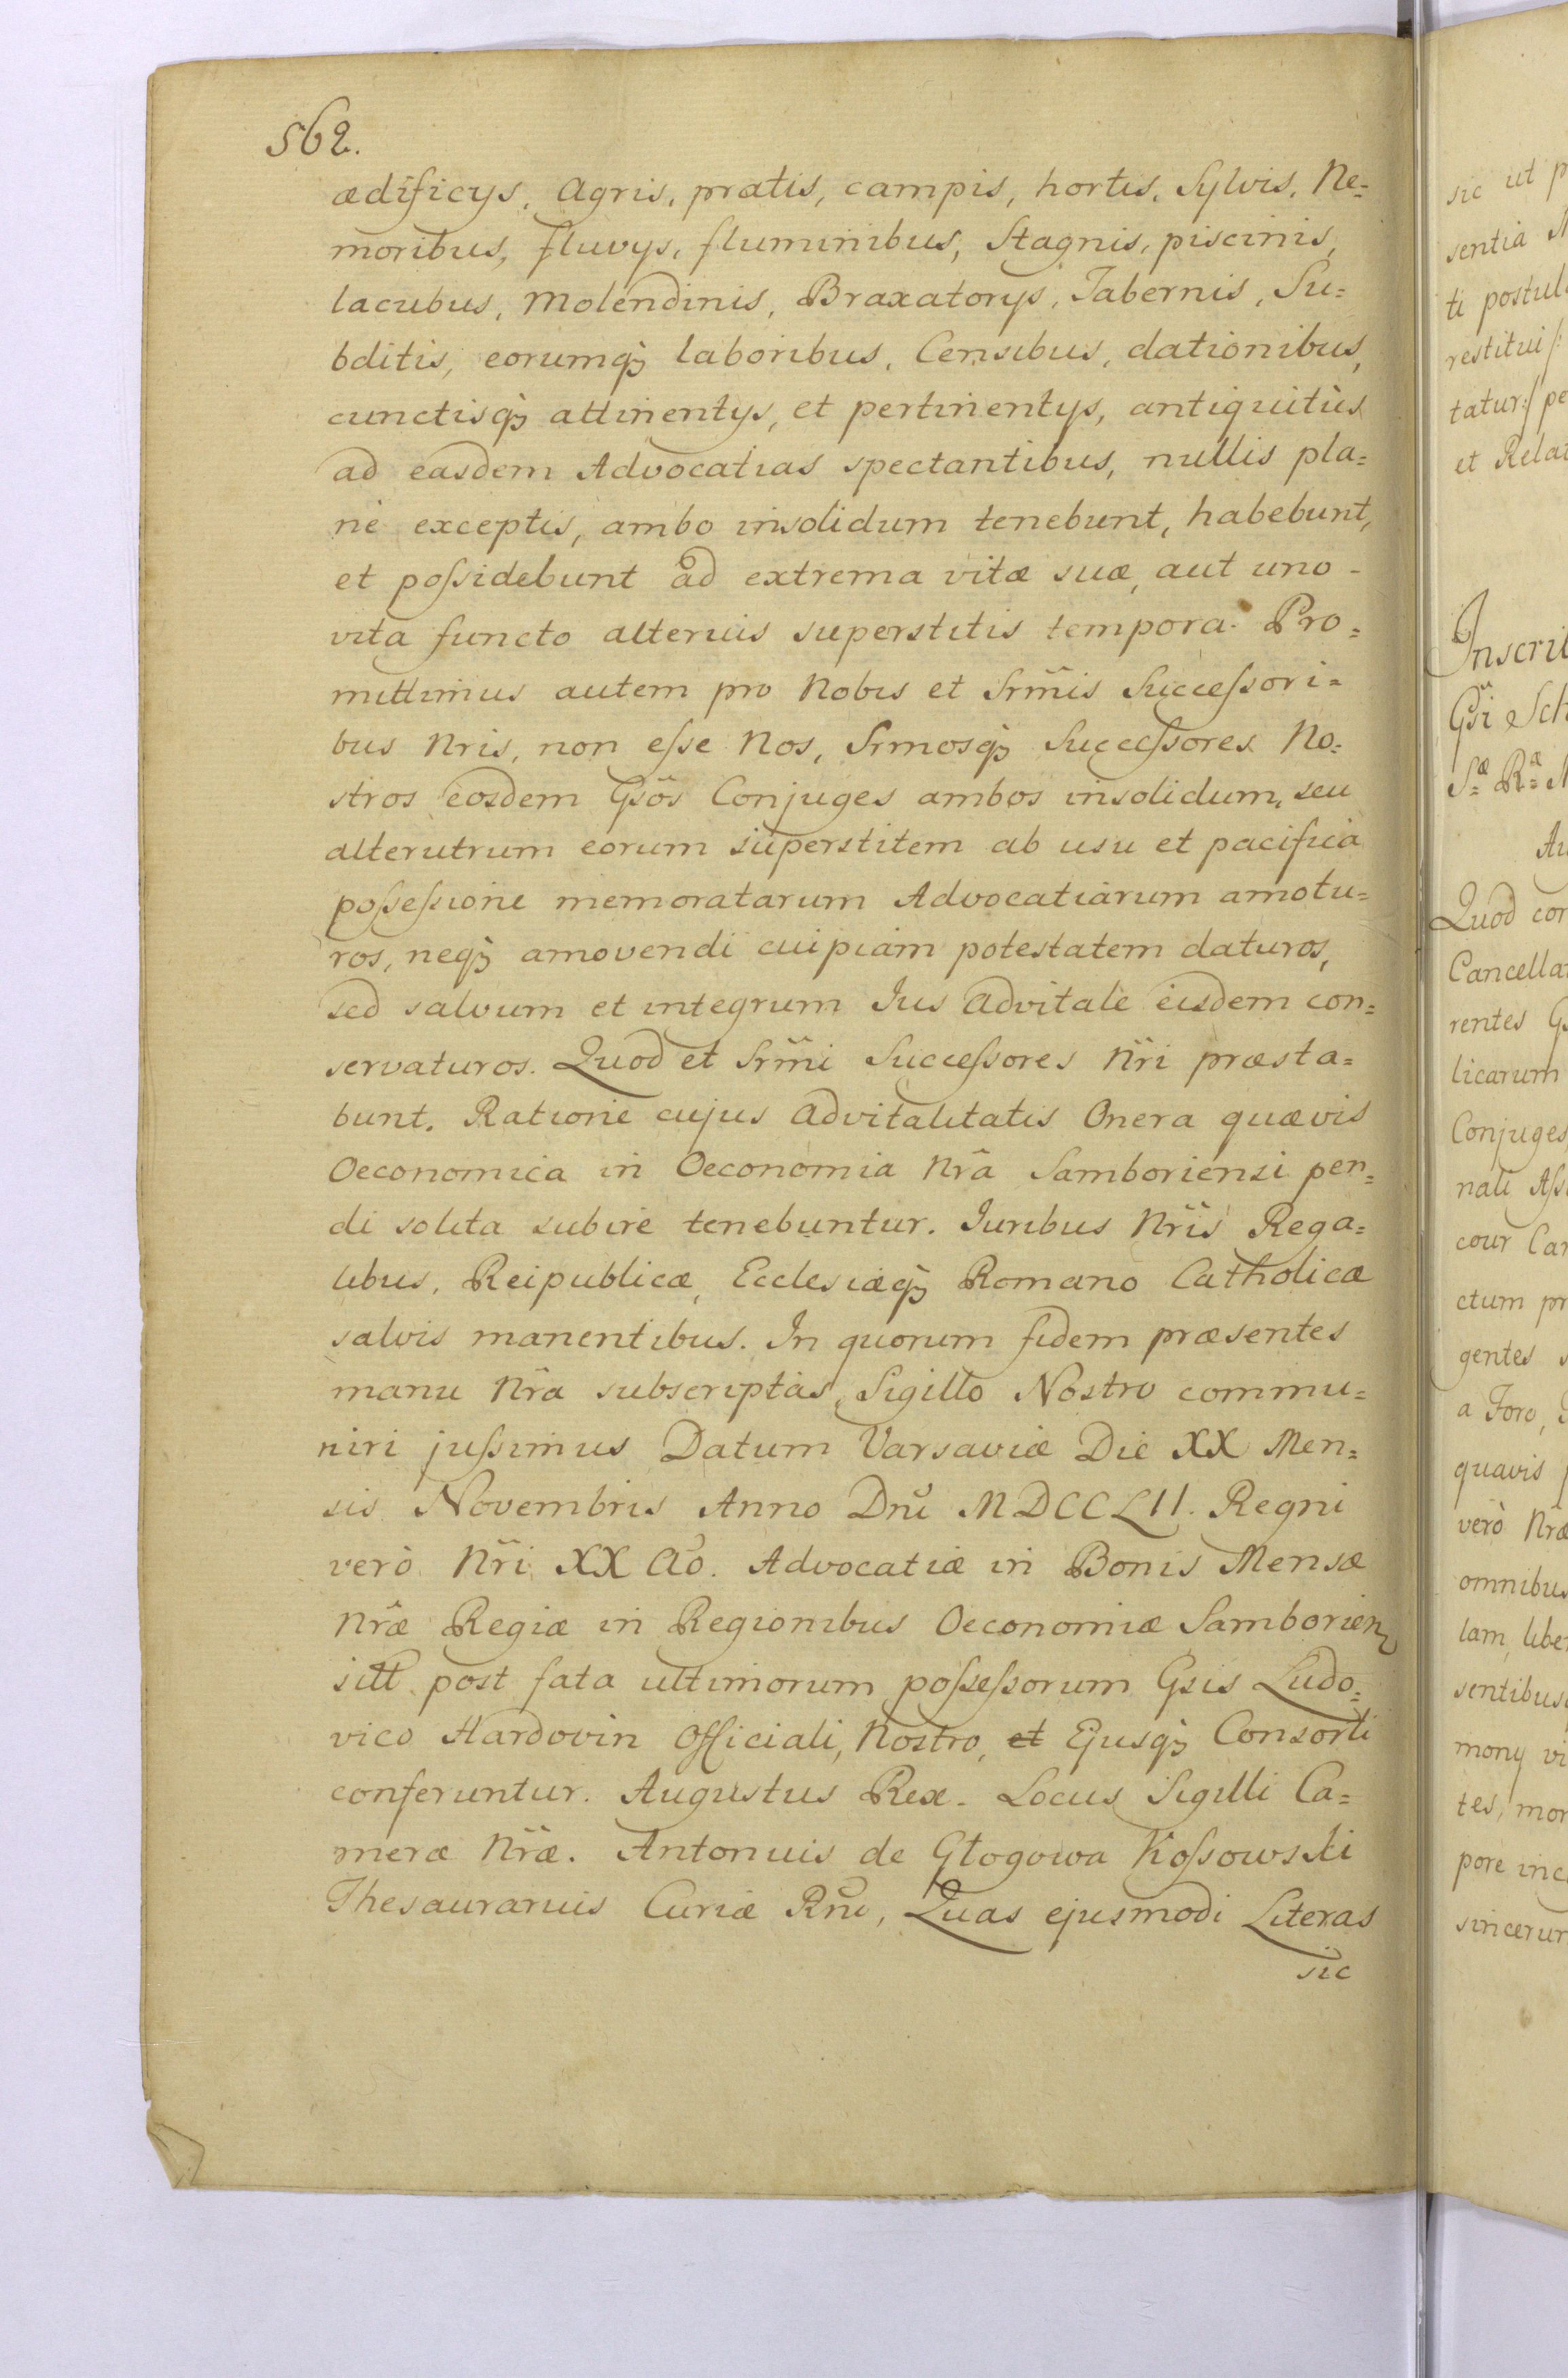 562.
ædificijs, Agris, pratis, campis, hortis, Sylvis, Ne=
moribus, fluvijs, fluminibus, Stagnis, piscinis,
lacubus, Molendinis, Braxatorijs, Tabernis, Su=
bditis, eorumq̃ laboribus, Censibus, dationibus,
cunctisq̃ attinentijs, et pertinentijs, antiquitùs
ad easdem Advocatias spectantibus, nullis pla=
nè exceptis, ambo insolidum tenebunt, habebunt,
et poſsidebunt ad extrema vitæ suæ, aut uno -
vita functo alterius superstitis tempora. Pro=
mittimus autem pro Nobis et Srm̃is Succeſsori=
bus Nris, non eſse Nos, Srmosq̃ Succeſsores No=
stros eosdem Gsõs Conjuges ambos insolidum, seu
alterutrum eorum superstitem ab usu et pacifica
poſseſsione memoratarum Advocatiarum amotu=
ros, neq̃ amovendi cuipiam potestatem daturos,
sed salvum et integrum Ius Advitale eisdem con=
servaturos. Quod et Srm̃i Succeſsores Nr̃i præsta=
bunt. Ratione cujus Advitalitatis Onera quævis
Oeconomica in Oeconomia Nr̃a Samboriensi pen=
di solita subire tenebuntur. Iuribus Nr̃is Rega=
libus, Reipublicæ, Ecclesiæq̃ Romano Catholicæ
salvis manentibus. In quorum fidem præsentes
manu Nr̃a subscriptas, Sigillo Nostro commu=
niri juſsimus Datum Varsaviæ Die XX Men=
sis Novembris Anno Dnĩ MDCCLII. Regni
verò Nr̃i XX Aõ. Advocatiæ in Bonis Mensæ
Nr̃æ Regiæ in Regionibus Oeconomiæ Samborien
sitt post fata ultimorum poſseſsorum Gsis Ludo=
vico Hardovin Officiali, Nostro, et Ejusq̃ Consorti
conferuntur. Augustus Rex. Locus Sigilli Ca=
meræ Nr̃æ. Antonius de Głogowa Koſsowski
Thesaurarius Curiæ Rñi, Quas ejusmodi Literas
sic
sic ut p
sentia
ti postul
restitui
tatur pe
et Relat
Inscrit
Gsĩ Sch
Quod cor
Cancella
rentes
licarum
Conjuges
nali
cour Car
ctum pr
gentes
a Foro,
quavis
verò Nræ
omnibus
lam, liber
sentibus
mony vi
tes, mor
pore inc
sincerum